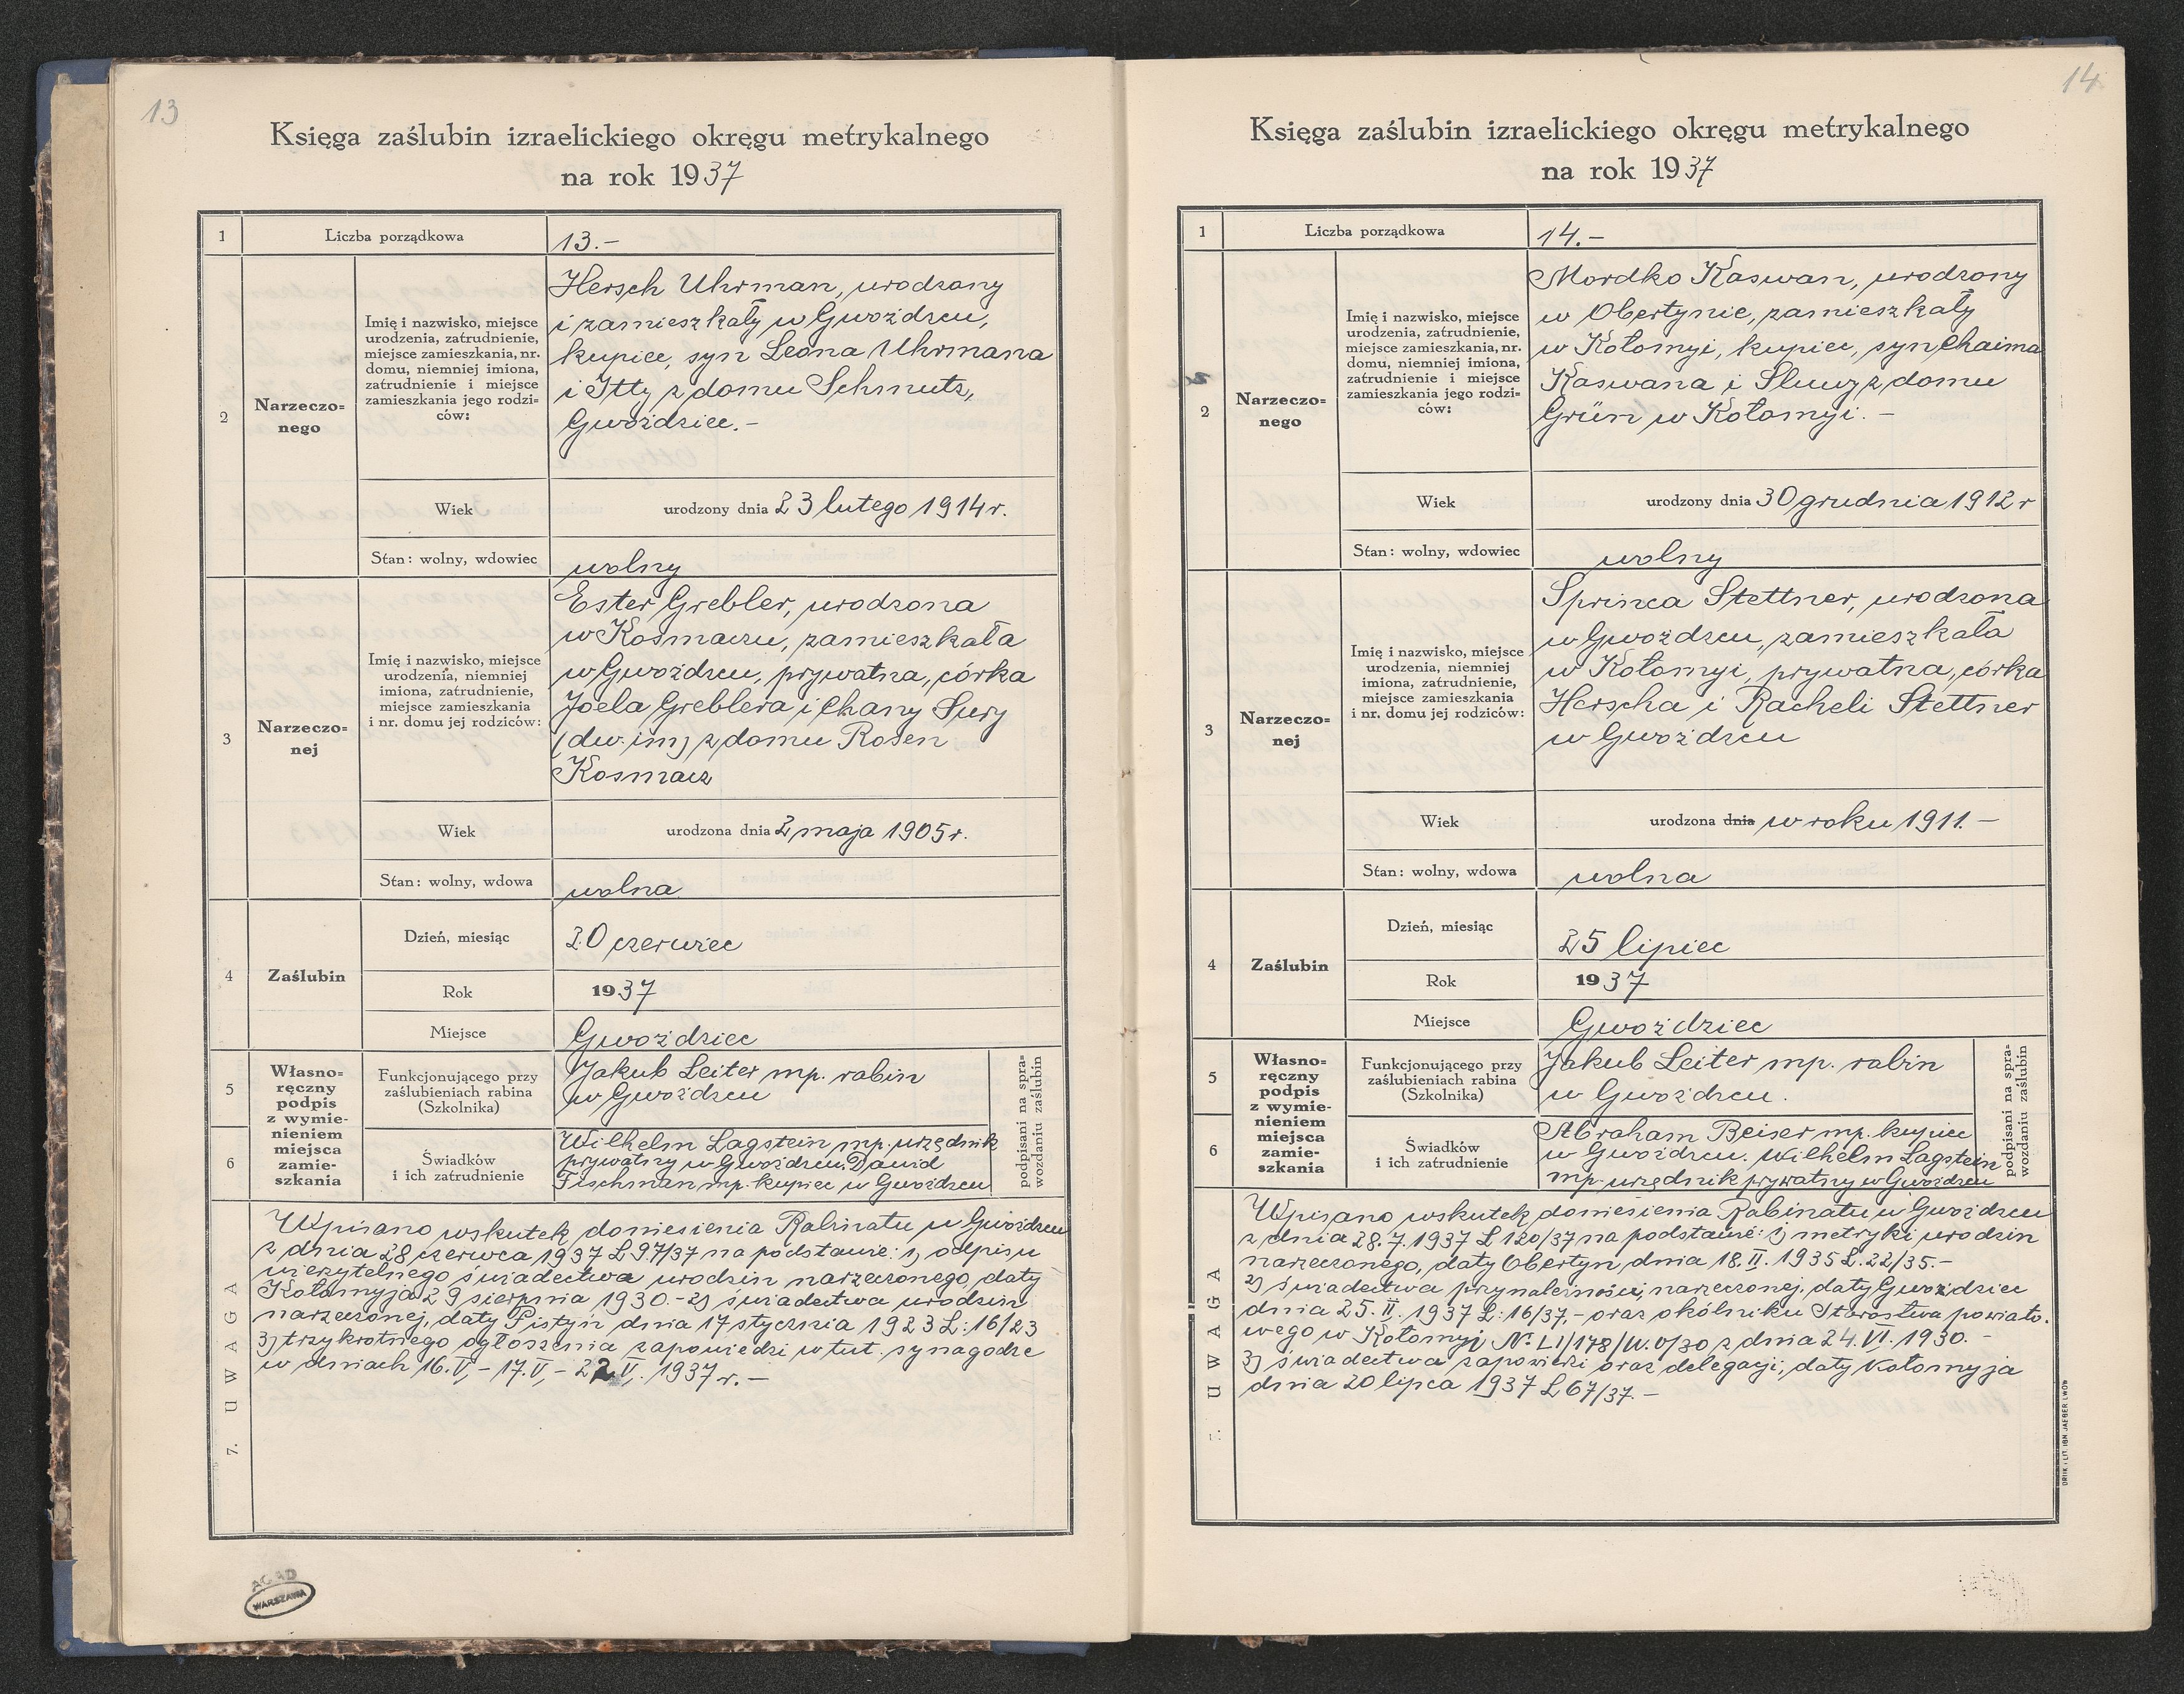 13
Księga zaślubin izraelickiego okręgu metrykalnego
na rok 1937
1
Liczba porządkowa
13.-
2
Narzeczo=
nego
Imię i nazwisko, miejsce
urodzenia, zatrudnienie,
miejsce zamieszkania, nr.
domu, niemniej imiona,
zatrudnienie i miejsce
zamieszkania jego rodzi-
ców:
Hersch Uhrman, urodzony
i zamieszkały w Gwoźdzcu,
kupiec, syn Leona Uhrmana
i Itty z domu Schmutz,
Gwoździec.-
Wiek
urodzony dnia 23 lutego 1914 r.
Stan: wolny, wdowiec
wolny
3
Narzeczo=
nej
Imię i nazwisko, miejsce
urodzenia, niemniej
imiona, zatrudnienie,
miejsce zamieszkania
i nr. domu jej rodziców:
Ester Grebler, urodzona
w Kosmaczu, zamieszkała
w Gwoźdzcu, prywatna, córka
Joela Greblera i Chany Sury
(dw. im) z domu Rosen
Kosmacz
Wiek
urodzona dnia 2 maja 1905 r.
Stan: wolny, wdowa
wolna
4
Zaślubin
Dzień, miesiąc
20 czerwiec
Rok
1937
Miejsce
Gwoździec
5
6
Własno=
ręczny
podpis
z wymie-
nieniem
miejsca
zamie-
szkania
Funkcjonującego przy
zaślubieniach rabina
(Szkolnika)
Jakub Leiter mp. rabin
w Gwoźdzcu
Świadków
i ich zatrudnienie
Wilhelm Lagstein mp. urzędnik
prywatny w Gwoźdzcu, Dawid
Fischman mp. kupiec w Gwoźdzcu
podpisani na spra-
wozdaniu zaślubin
7. UWAGA
Wpisano wskutek doniesienia Rabinatu w Gwoźdzcu
z dnia 28 czerwca 1937 L 97/37 na podstawie: 1) odpisu
wierzytelnego świadectwa urodzin narzeczonego, daty
Kołomyja 29 sierpnia 1930.- 2) świadectwa urodzin
narzeczonej, daty Pistyn dnia 17 stycznia 1923 L: 16/23
3) trzykrotnego ogłoszenia zapowiedzi w tut. synagodze
w dniach 16.V,- 17.V,- 22.V. 1937 r.-
WARSZAWA
14
Księga zaślubin izraelickiego okręgu metrykalnego
na rok 1937
1
Liczba porządkowa
14.-
2
Narzeczo=
nego
Imię i nazwisko, miejsce
urodzenia, zatrudnienie,
miejsce zamieszkania, nr.
domu, niemniej imiona,
zatrudnienie i miejsce
zamieszkania jego rodzi-
ców:
Mordko Kaswan, urodzony
w Obertynie, zamieszkały
w Kołomyi, kupiec, syn Chaima
Kaswana i Sluwy z domu
Grün w Kołomyi.-
Wiek
urodzony dnia 30 grudnia 1912 r
Stan: wolny, wdowiec
wolny
3
Narzeczo=
nej
Imię i nazwisko, miejsce
urodzenia, niemniej
imiona, zatrudnienie,
miejsce zamieszkania
i nr. domu jej rodziców:
Sprinca Stettner, urodzona
w Gwoźdzcu, zamieszkała
w Kołomyi, prywatna, córka
Herscha i Racheli Stettner
w Gwoźdzcu
Wiek
urodzona dnia w roku 1911.-
Stan: wolny, wdowa
wolna
4
Zaślubin
Dzień, miesiąc
25 lipiec
Rok
1937
Miejsce
Gwoździec
5
6
Własno=
ręczny
podpis
z wymie-
nieniem
miejsca
zamie-
szkania
Funkcjonującego przy
zaślubieniach rabina
(Szkolnika)
Jakub Leiter mp. rabin
w Gwoźdzcu.
Świadków
i ich zatrudnienie
Abraham Beiser mp. kupiec
w Gwoźdzcu. Wilhelm Lagstein
mp. urzędnik prywatny w Gwoźdzcu
podpisani na spra-
wozdaniu zaślubin
UWAGA
Wpisano wskutek doniesienia Rabinatu w Gwoźdzcu
z dnia 28.7.1937 L 120/37 na podstawie: 1) metryki urodzin
narzeczonego, daty Obertyn, dnia 18.II.1935 L.22/35.-
2) świadectwa przynależności narzeczonej, daty Gwoździec
dnia 25.II.1937 L: 16/37,- oraz okólniku Starostwa powiato-
wego w Kołomyi N° L1/178/W.0/30 z dnia 24.VI.1930.-
3) świadectwa zapowiedzi oraz delegacji, daty Kołomyja
dnia 20 lipca 1937 L 67/37.-
DRUK i LIT. IGN. JAEGER LWÓW